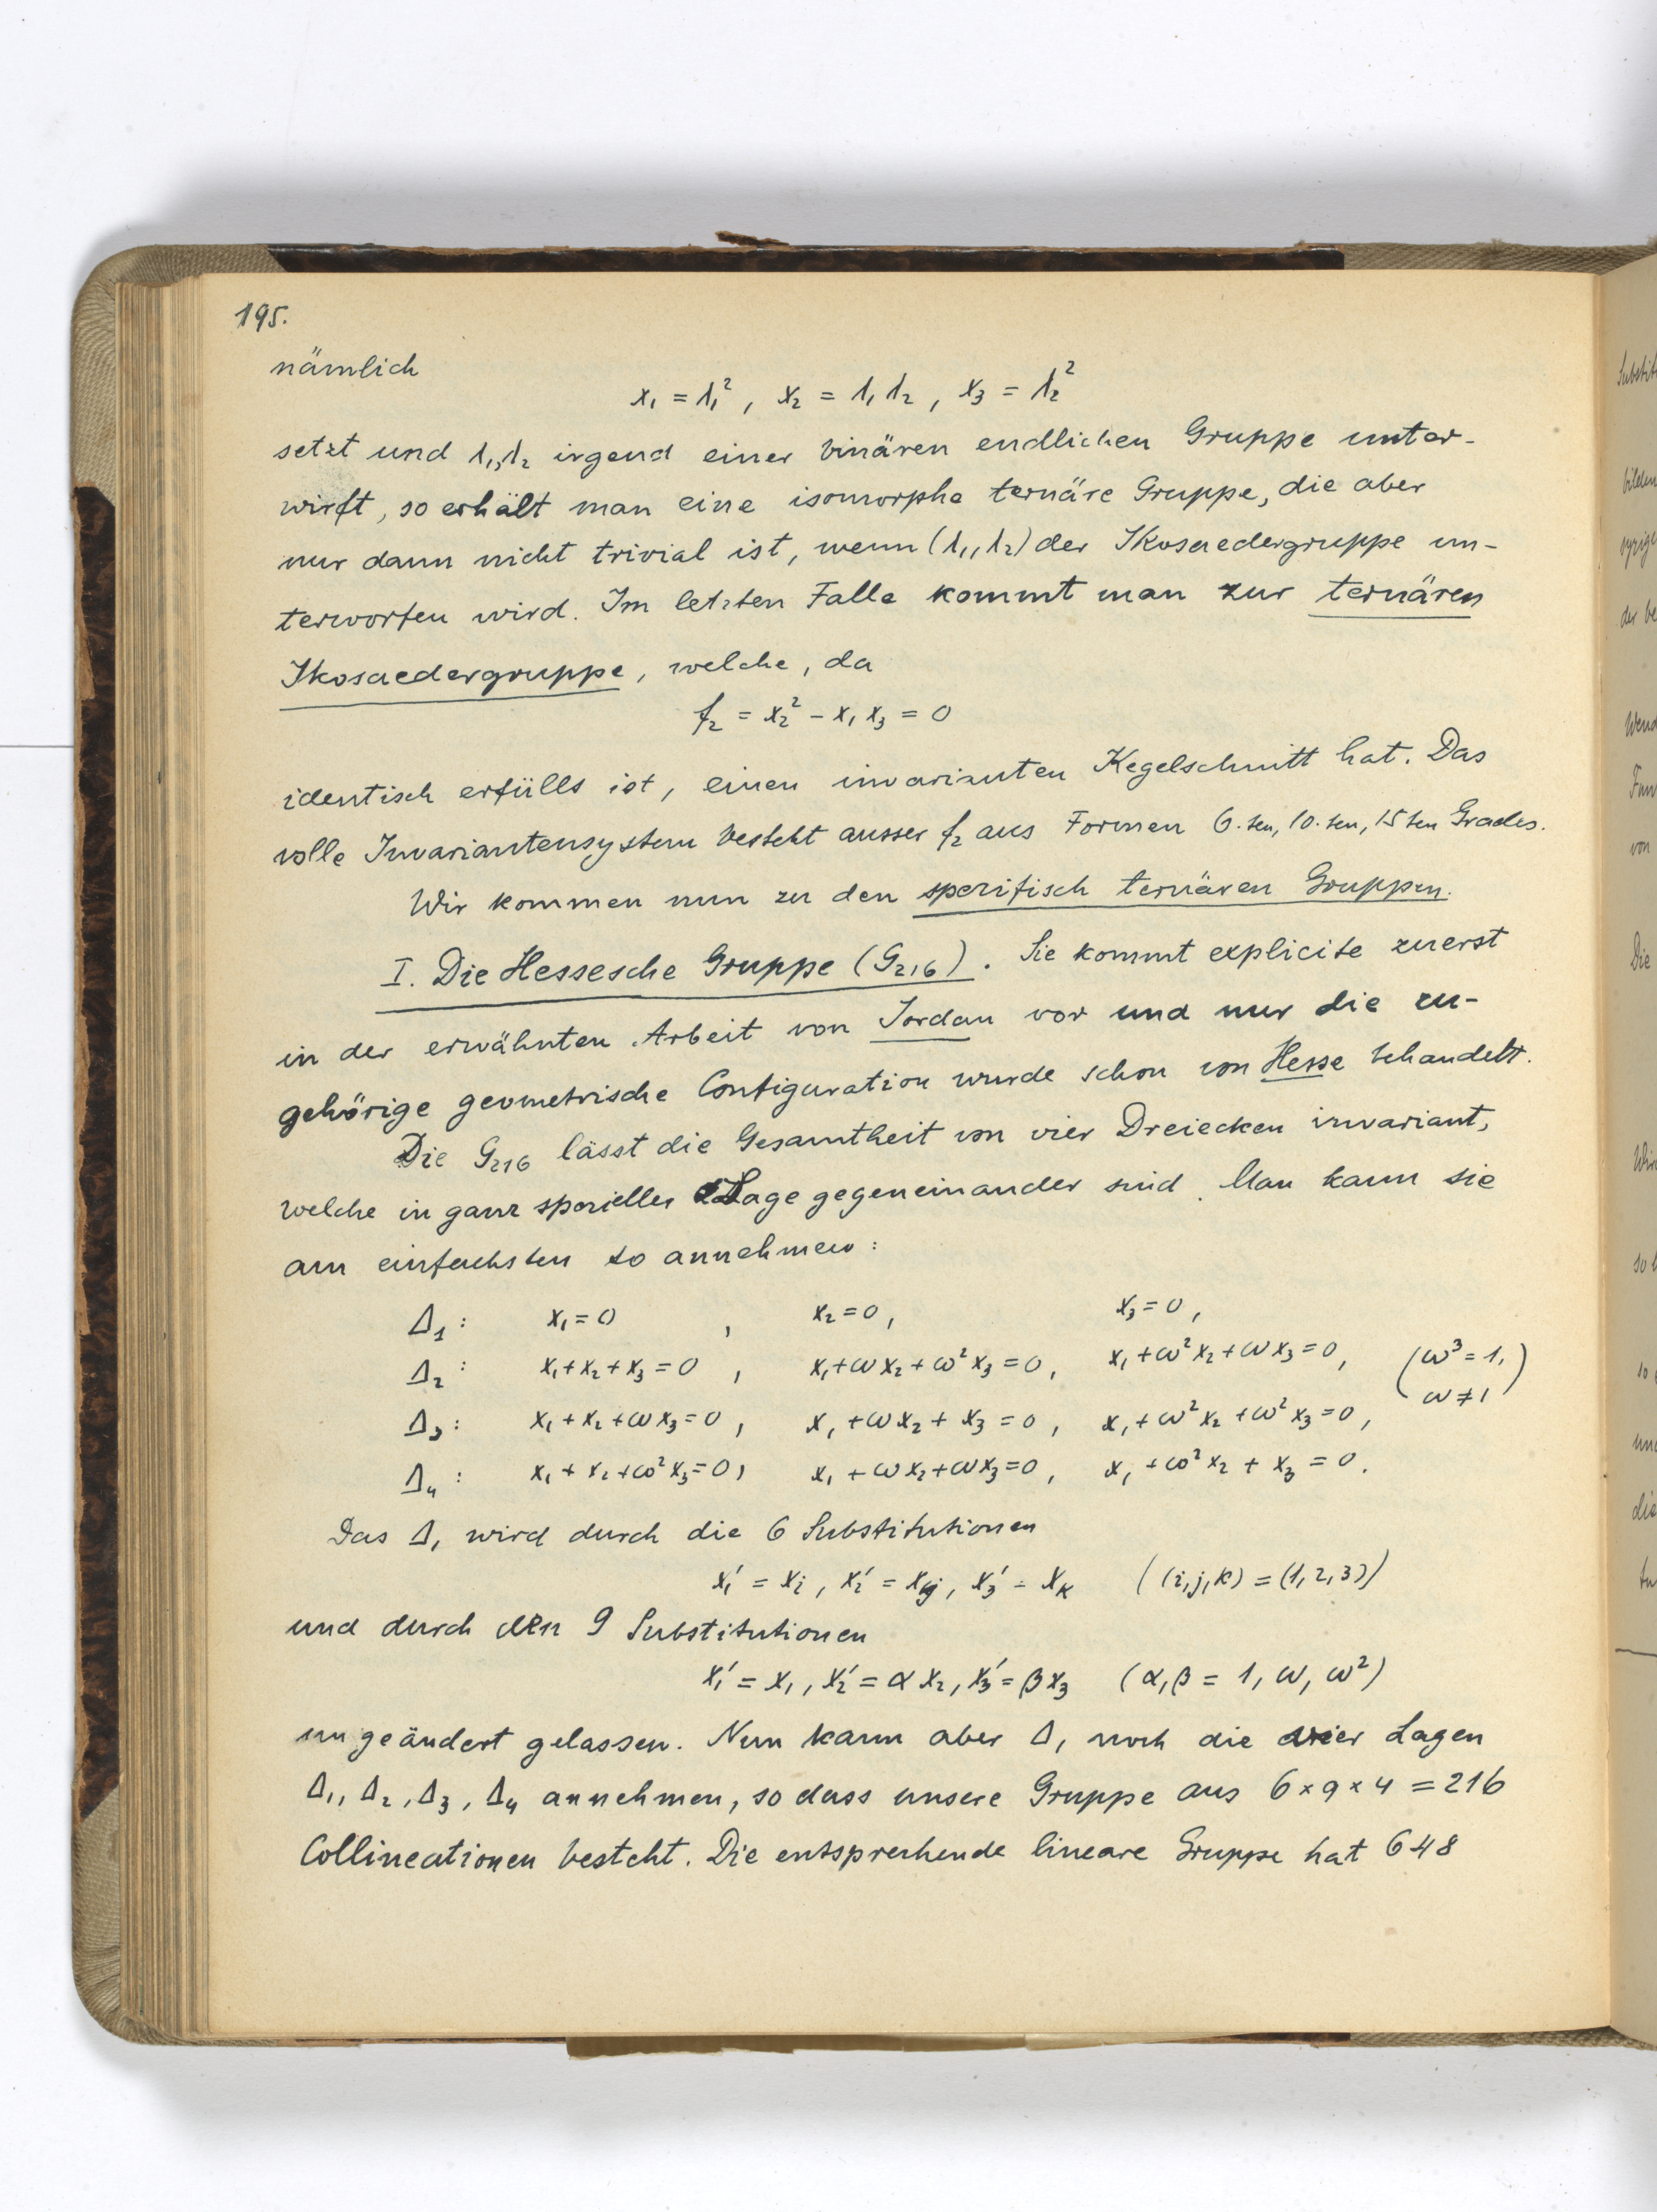 195.
nämlich
x₁ = λ₁², x₂ = λ₁λ₂, x₃ = λ₂²
setzt und λ₁,λ₂ irgend einer binären endlichen Gruppe unter-
wirft, so erhält man eine isomorphe ternäre Gruppe, die aber
nur dann nicht trivial ist, wenn (λ₁,λ₂) der Ikosaedergruppe un-
terworfen wird. Im letzten Falle kommt man zur ternären
Ikosaedergruppe, welche, da
f₂ = x₂² − x₁x₃ = 0
identisch erfülls ist, einen invarianten Kegelschnitt hat. Das
volle Invariantensystem besteht ausser f₂ aus Formen 6.ten, 10.ten, 15ten Grades.
Wir kommen nun zu den spezifisch ternären Gruppen.
I. Die Hessesche Gruppe (G₂₁₆). Sie kommt explicite zuerst
in der erwähnten Arbeit von Jordan vor und nur die zu-
gehörige geometrische Configuration wurde schon von Hesse behandelt.
Die G₂₁₆ lässt die Gesamtheit von vier Dreiecken invariant,
welche in ganz spezieller Lage gegeneinander sind. Man kann sie
am einfachsten so annehmen:
Δ₁: x₁=0 , x₂=0, x₃=0,
Δ₂: x₁+x₂+x₃=0 , x₁+ωx₂+ω²x₃=0, x₁+ω²x₂+ωx₃=0, (ω³=1,
ω≠1)
Δ₃: x₁+x₂+ωx₃=0, x₁+ωx₂+x₃=0, x₁+ω²x₂+ω²x₃=0,
Δ₄: x₁+x₂+ω²x₃=0, x₁+ωx₂+ωx₃=0, x₁+ω²x₂+x₃=0.
Das Δ₁ wird durch die 6 Substitutionen
x₁′ = xᵢ, x₂′ = xⱼ, x₃′ = xₖ ((i,j,k) = (1,2,3))
und durch den 9 Substitutionen
x₁′ = x₁, x₂′ = αx₂, x₃′ = βx₃ (α,β = 1, ω, ω²)
ungeändert gelassen. Nun kann aber Δ₁ noch die vier Lagen
Δ₁, Δ₂, Δ₃, Δ₄ annehmen, so dass unsere Gruppe aus 6×9×4 = 216
Collineationen besteht. Die entsprechende lineare Gruppe hat 648